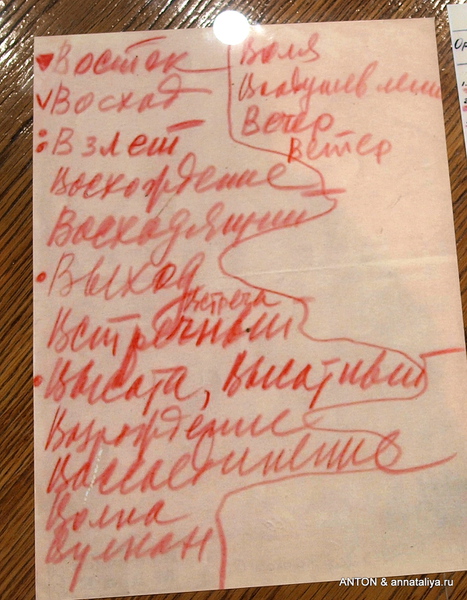 Восток
Восход
Взлет
Восхождение
Восходящий
Выход
Встреча
Встречный
Высота, Высотный
Возрождение
Воссоединение
Волна
Вулкан
Воля
Воодушевление
Вечер
Ветер
ANTON & annataliya.ru